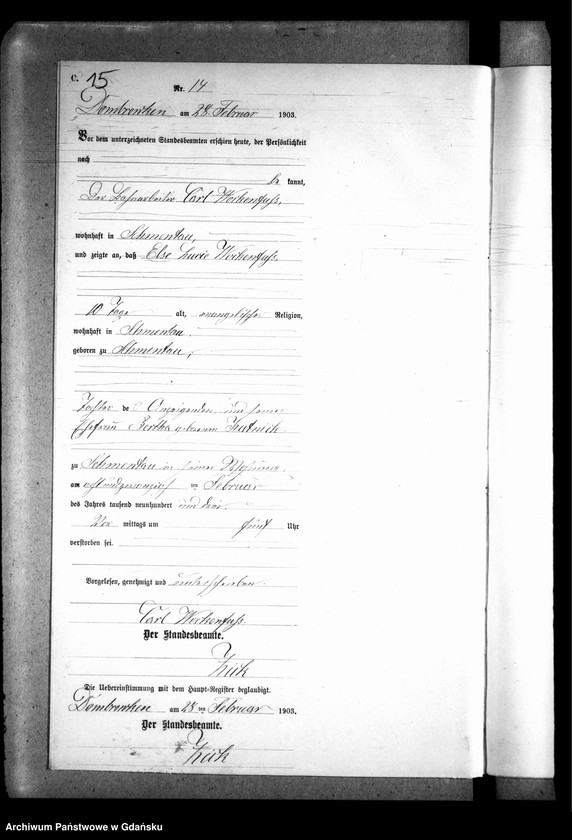 C. 15
Nr. 14
Dombrowken am 28 Februar 1903.
Vor dem unterzeichneten Standesbeamten erschien heute, der Persönlichkeit
nach
be kannt,
Der Carl Wockenfuß,
wohnhaft in Schmentau,
und zeigte an, daß Else Lucie Wockenfuß,
10 Tage alt, evangelischer Religion,
wohnhaft in Schmentau
geboren zu Schmentau,
Tochter des Anzeigenden und seiner
Ehefrau Bertha geborenen
zu Schmentau in seiner Wohnung
am achtundzwanzigsten ten Februar
des Jahres tausend neunhundert und drei
Vor mittags um fünf Uhr
verstorben sei.
Vorgelesen, genehmigt und unterschrieben
Carl Wockenfuß
Der Standesbeamte.
Die Uebereinstimmung mit dem Haupt-Register beglaubigt.
Dombrowken am 28 ten Februar 1903.
Der Standesbeamte.
Archiwum Państwowe w Gdańsku